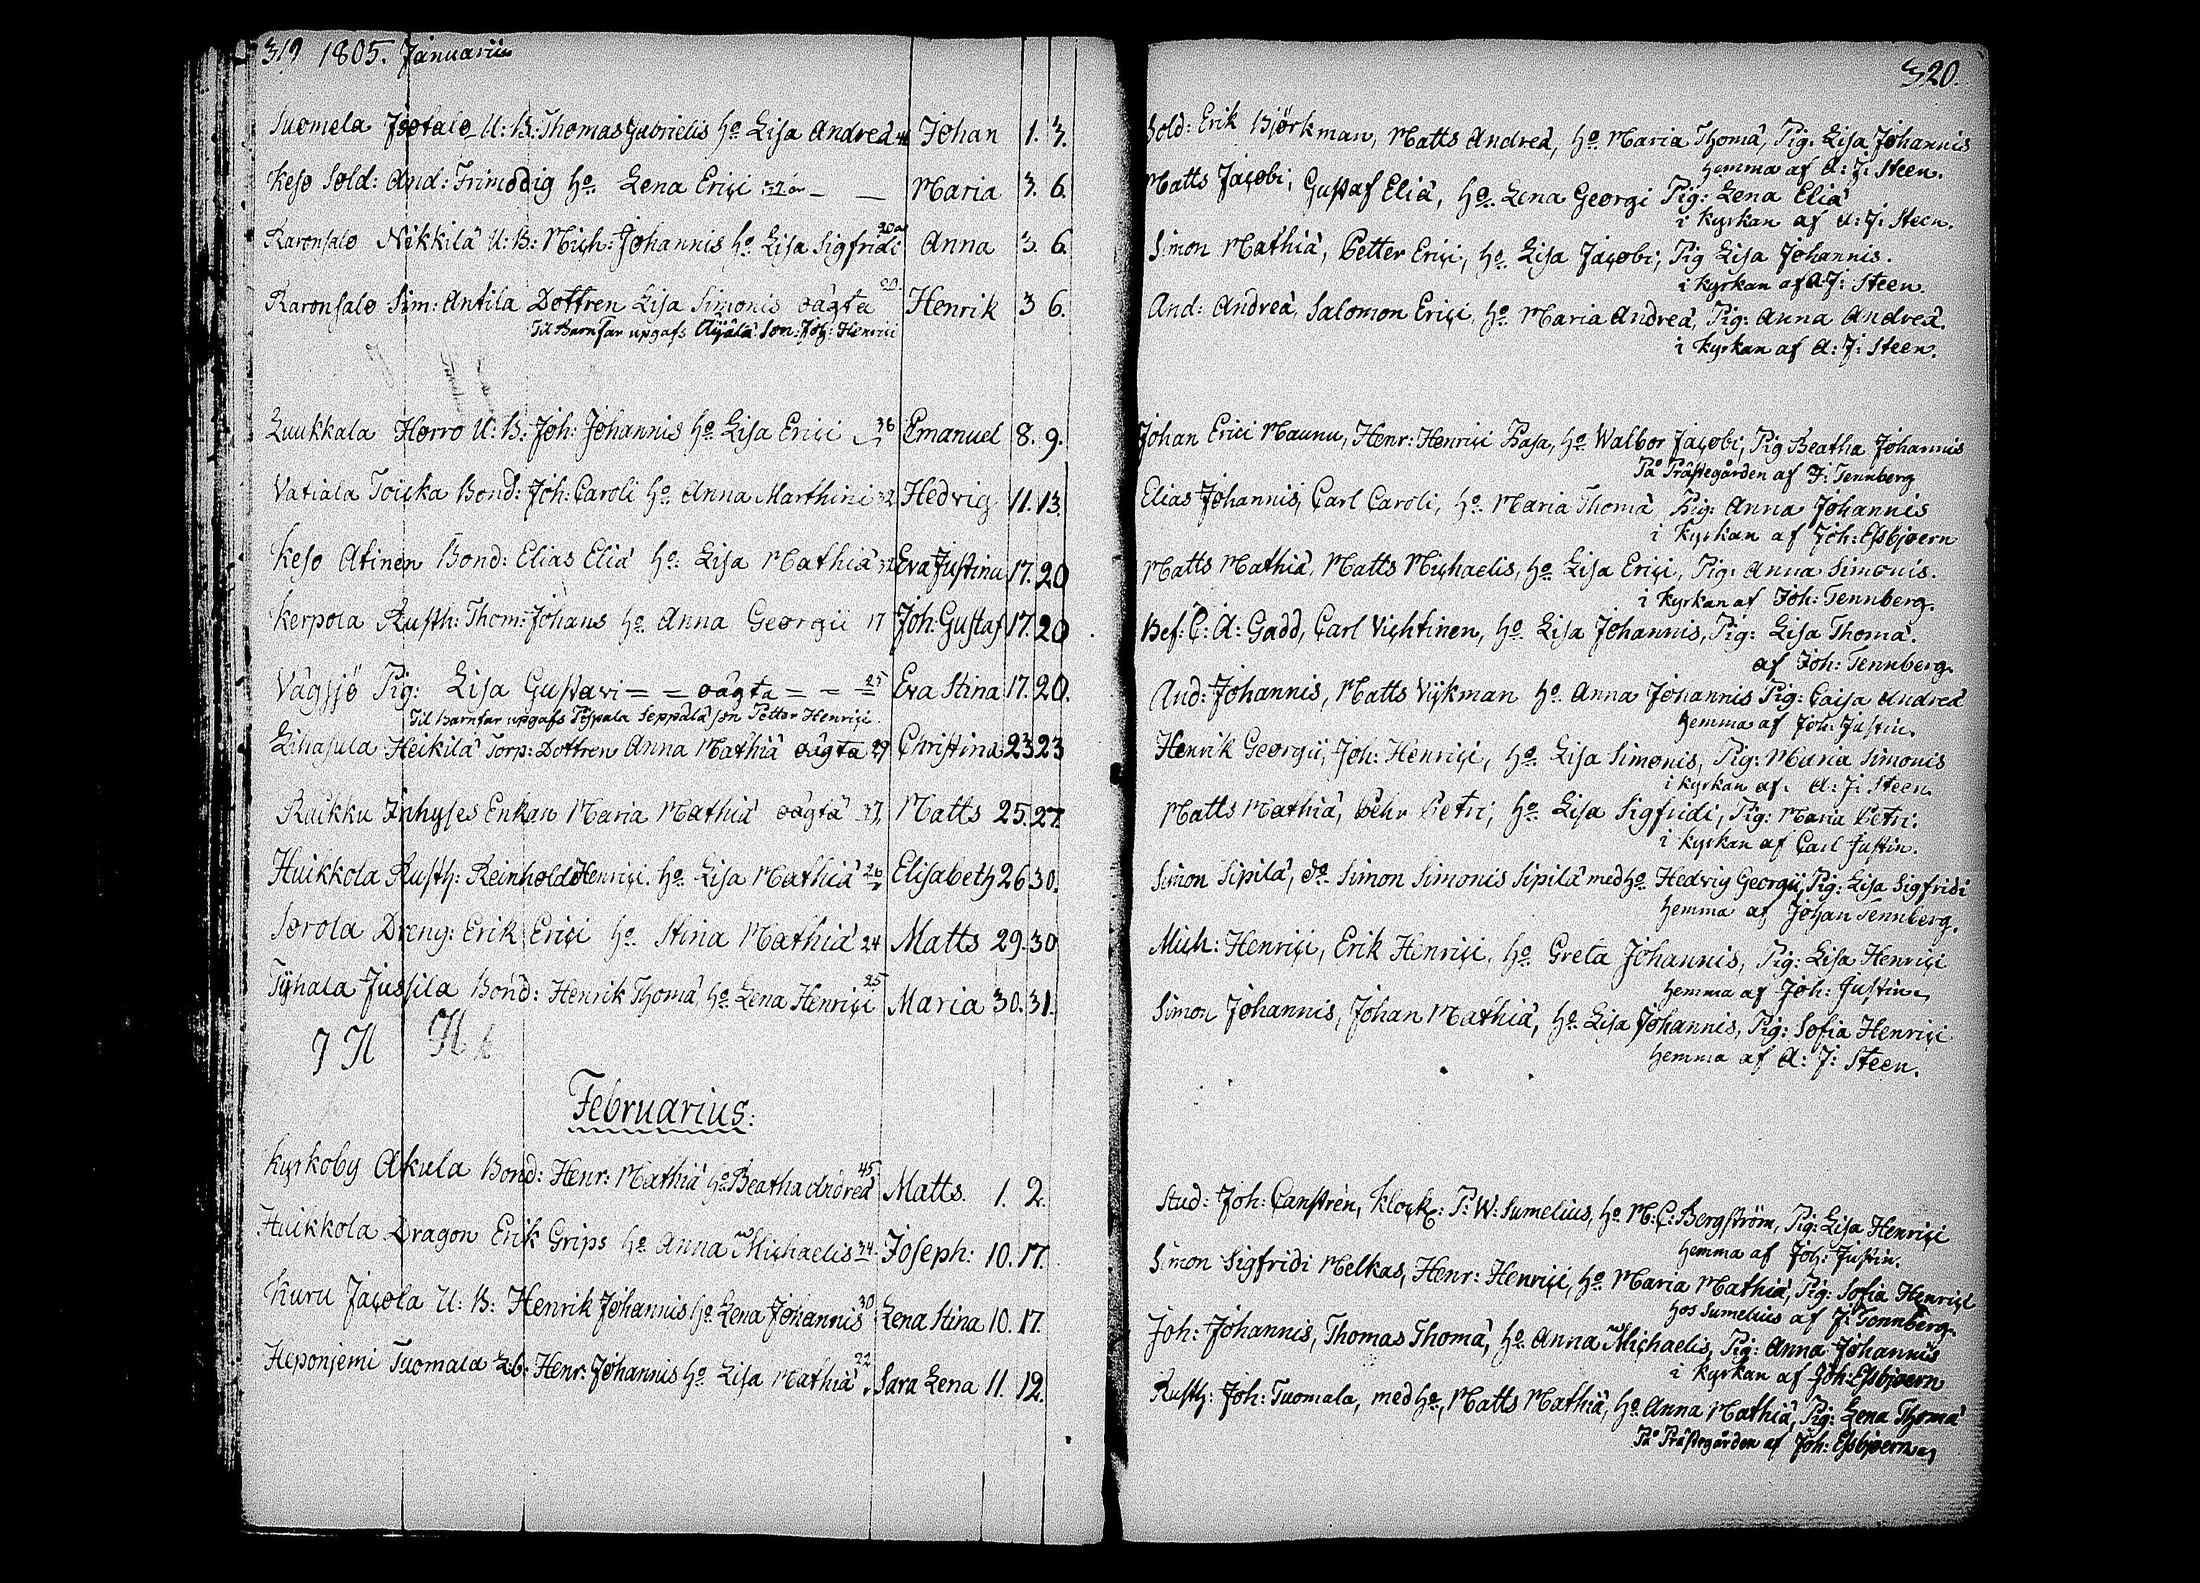 319 1805. Januarii
Suomela Jootalo U: B: Thomas Gabrielis ho Lisa Andreä Johan 1. 3.
Keso Sold: And: Frimodig ho. Lena Eriçi 32 år — — Maria 3. 6.
Karonsalo Nikkilä U: B: Miçh: Johannis ho Lisa Sigfridi Anna 3. 6.
Karonsalo Sim: Antila Dottren Lisa Simonis oägta 20. Henrik 3 6.
Til Barnfar upgafs Äijälä Son: Joh: Henrici
Luukkala Horro U: B: Joh: Johannis ho Lisa Eriçi 36 Emanuel 8. 9.
Vatiala Toiska Bond: Joh: Caroli ho Anna Marthini 32 Hedvig 11. 13.
Keso Atinen Bond: Elias Eliä ho. Lisa Mathiä 32 Eva Justina 17. 20
Kerpola Rusth: Thom: Johans ho Anna Georgii 17 Joh: Gustaf 17. 20
Vägsjö Pig: Lisa Gustavi = = oägta = = 25 Eva Stina 17. 20.
Til Barnfar upgafs Pispala Seppälä son Petter Henriçi.
Lihasula Heikilä Torp: Dottren Anna Mathiä oägta 27 Christina 23 23
Ruikku Inhyses Enkan Maria Mathiä oägta 37 Matts 25. 27.
Huikkola Rusth: Reinhold Henriçi. ho Lisa Mathiä 26 Elisabeth 26 30.
Sorola Dreng: Erik Eriçi ho Stina Mathiä 24 Matts 29. 30
Tÿhala Jussila Bond: Henrik Thomä ho Lena Henriçi 25 Maria 30. 31.
Februarius:
Kyrkoby Akula Bond: Henr: Mathiä ho Beatha Andreä 45 Matts. 1. 2.
Huikkola Dragon Erik Grips ho Anna Miçhaelis 34 Joseph: 10. 17.
Kuru Jaçola U: B: Henrik Johannis ho Lena Johannis 30 Lena Stina 10. 17.
Heponjemi Tuomala Lb: Henr: Johannis ho Lisa Mathiä 22 Sara Lena 11. 12.
320.
Sold: Erik Björkman, Matts Andreä, ho Maria Thomä, Pig: Lisa Johannis
hemma af A: J: Steen.
Matts Jaçobi, Gustaf Eliä, ho. Lena Georgi Pig: Lena Eliä
i kyrkan af A: J: Steen.
Simon Mathiä, Petter Eriçi, ho Lisa Jaçobi; Pig Lisa Johannis.
i kyrkan af A: J: Steen.
And: Andreä, Salomon Eriçi, ho Maria Andreä, Pig: Anna Andreä.
i kyrkan af A: J: Steen.
Johan Eriçi Maunu, Henr: Henriçi Basa, ho Walbor Jaçobi, Pig Beatha Johannis
På Prästegården af J: Tennberg
Elias Johannis, Carl Caroli, ho. Maria Thomä Pig: Anna Johannis
i kyrkan af Joh: Essbjoern
Matts Mathiä, Matts Miçhaelis, ho Lisa Eriçi, Pig: Anna Simonis.
i kyrkan af Joh: Tennberg.
Bef: C: A: Gadd, Carl Viçhtinen, ho. Lisa Johannis, Pig: Lisa Thomä.
af Joh: Tennberg.
And: Johannis, Matts Vijkman ho Anna Johannis Pig: Caisa Andreä
hemma af Joh: Justin.
Henrik Georgii, Joh: Henriçi, ho Lisa Simonis, Pig: Maria Simonis
i kyrkan af. A: J: Steen.
Matts Mathiä, Pehr Petri, ho Lisa Sigfridi, Pig: Maria Petri.
i kyrkan af Carl Justin.
Simon Sipilä, do Simon Simonis Sipilä med ho Hedvig Georgii, Pig: Lisa Sigfridi
hemma af Johan Tennberg.
Miçh: Henriçi, Erik Henriçi, ho Greta Johannis, Pig: Lisa Henriçi
hemma af Joh: Justin.
Simon Johannis, Johan Mathiä, ho Lisa Johannis, Pig: Sofia Henriçi
hemma af A: J: Steen.
Stud: Joh: Canstrén, Kloçk: P: W: Sumelius, ho M: C: Bergström, Pig: Lisa Henriçi
hemma af Joh: Justin.
Simon Sigfridi Melkas, Henr: Henriçi, ho Maria Mathiä, Pig: Sofia Henriçi
hos Sumelius af J: Tennberg.
Joh: Johannis, Thomas Thomä, ho Anna Miçhaelis, Pig: Anna Johannis
i kyrkan af Joh: Essbjoern
Rusth: Joh: Tuomala, med ho, Matts Mathiä, ho Anna Mathiä, Pig: Lena Thomä
På Prästegården af Joh: Essbjoern